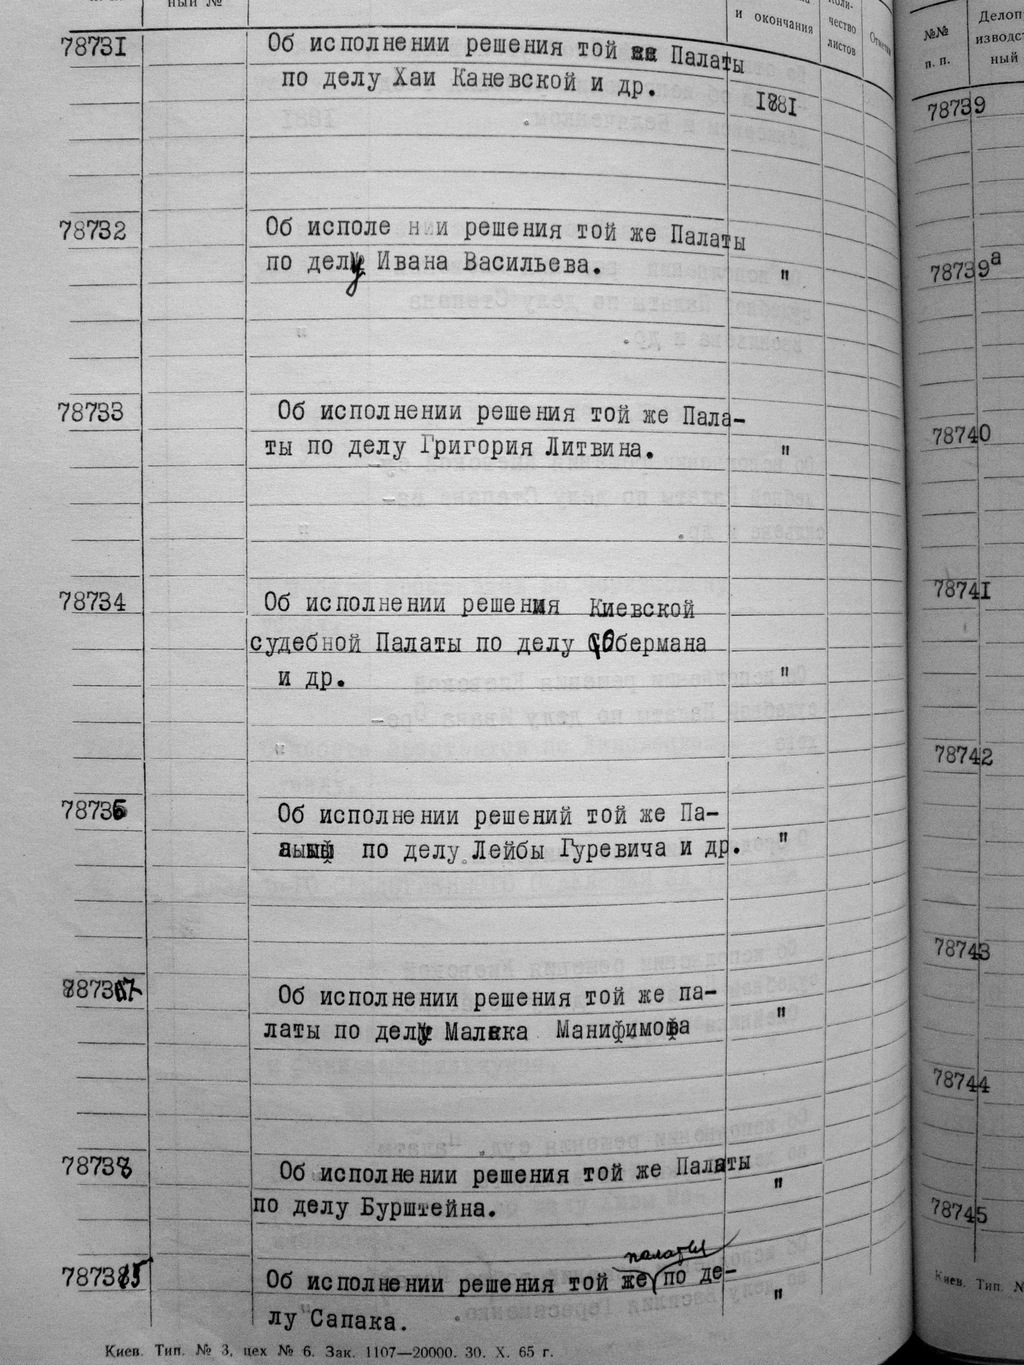 ный №
и окончания
чество
листов
78731
Об исполнении решения той Палаты
по делу Хаи Каневской и др.
1881
78732
Об исполе нии решения той же Палаты
по делу Ивана Васильева.
"
78733
Об исполнении решения той же Пала-
ты по делу Григория Литвина.
"
78734
Об исполнении решения Киевской
судебной Палаты по делу Собермана
и др.
"
78736
Об исполнении решений той же Па-
по делу Лейбы Гуревича и др.
"
78737
Об исполнении решения той же па-
латы по делу Маляка Манифимова
"
78738
Об исполнении решения той же Палаты
по делу Бурштейна.
"
78735
палаты
Об исполнении решения той же по де-
лу Сапака.
"
Киев. Тип. № 3, цех № 6. Зак. 1107—20000. 30. X. 65 г.
№№
п. п.
Делоп
изводст
ный
78739
78739а
78740
78741
78742
78743
78744
78745
Киев. Тип. №